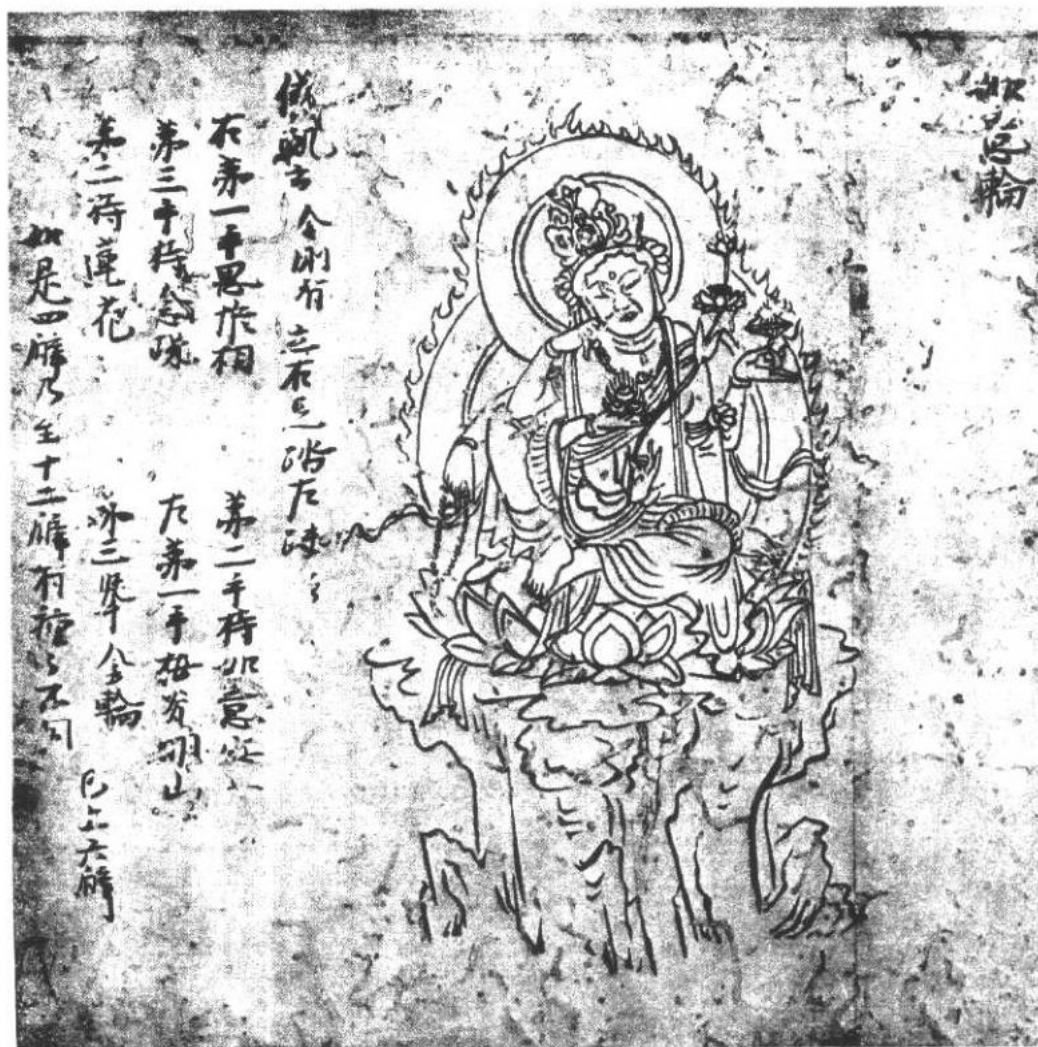 如意輪
儀軌云 金剛有 立右足踏左
右第一手思惟相 第二手持如意宝
第三手持念珠 左第一手 光明山
第二持蓮花 第三挙金輪
如是四臂乃至十二臂有 不同 已上六臂